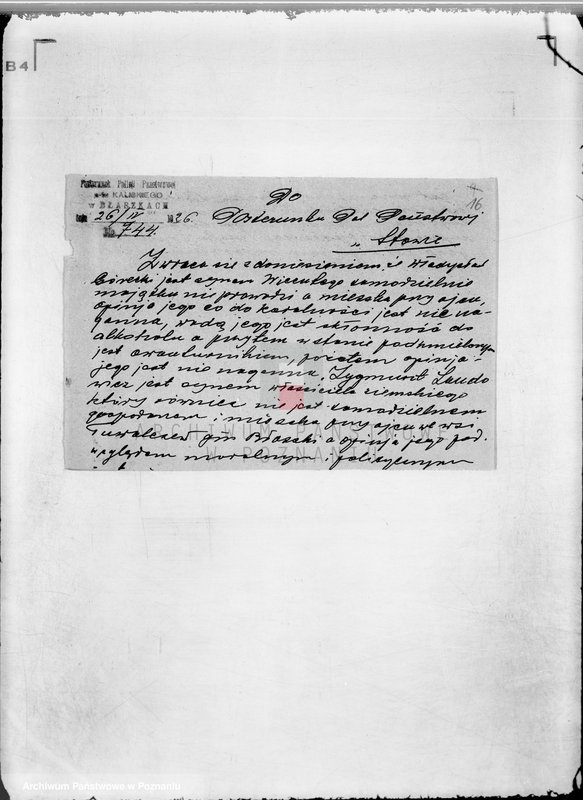 B4
Posterunek Policji Państwowej
pow. KALISKIEGO
w BŁASZKACH
dnia 26/IV 1926.
№ 744.
16
Do
Posterunku Pol Państwowej
w Stawie
Zwraca się z doniesieniem, iż Władysław
Górecki jest synem Wincentego samodzielnie
majątku nie prowadzi a mieszka przy ojcu,
opinja jego co do karalności jest nie na-
ganna, wadą jego jest skłonność do
alkoholu a przytem w stanie podchmielonym
jest awanturnikiem, pozatem opinja
jego jest nie naganna. Zygmunt Lando
wicz jest synem właściciela ziemskiego
który również nie jest samodzielnem
gospodarzem i mieszka przy ojcu we wsi
gm Błaszki a opinja jego pod
względem moralnym i politycznym
ARCHIWUM PAŃSTWOWE
W POZNANIU
Archiwum Państwowe w Poznaniu